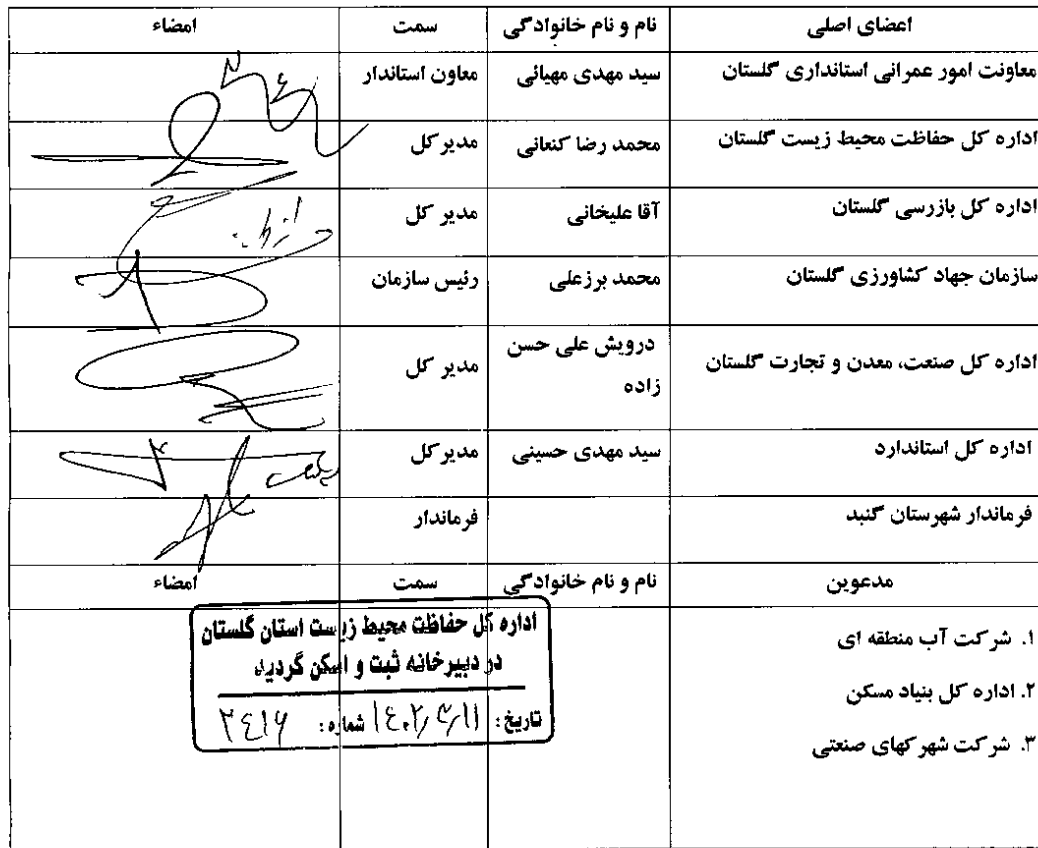 اعضای اصلی نام و نام خانوادگی سمت امضاء
معاونت امور عمرانی استانداری گلستان سید مهدی مهیائی معاون استاندار
اداره کل حفاظت محیط زیست گلستان محمد رضا کنعانی مدیر کل
اداره کل بازرسی گلستان آقا علیخانی مدیر کل
سازمان جهاد کشاورزی گلستان محمد برزعلی رئیس سازمان
اداره کل صنعت، معدن و تجارت گلستان درویش علی حسن مدیر کل
زاده
اداره کل استاندارد سید مهدی حسینی مدیر کل
فرماندار شهرستان گنبد فرماندار
مدعوین نام و نام خانوادگی سمت امضاء
۱. شرکت آب منطقه ای
۲. اداره کل بنیاد مسکن
۳. شرکت شهرکهای صنعتی
اداره کل حفاظت محیط زیست استان گلستان
در دبیرخانه ثبت و اسکن گردید
تاریخ: ۱۴۰۲/۴/۱۱ شماره: ۲۴۱۶